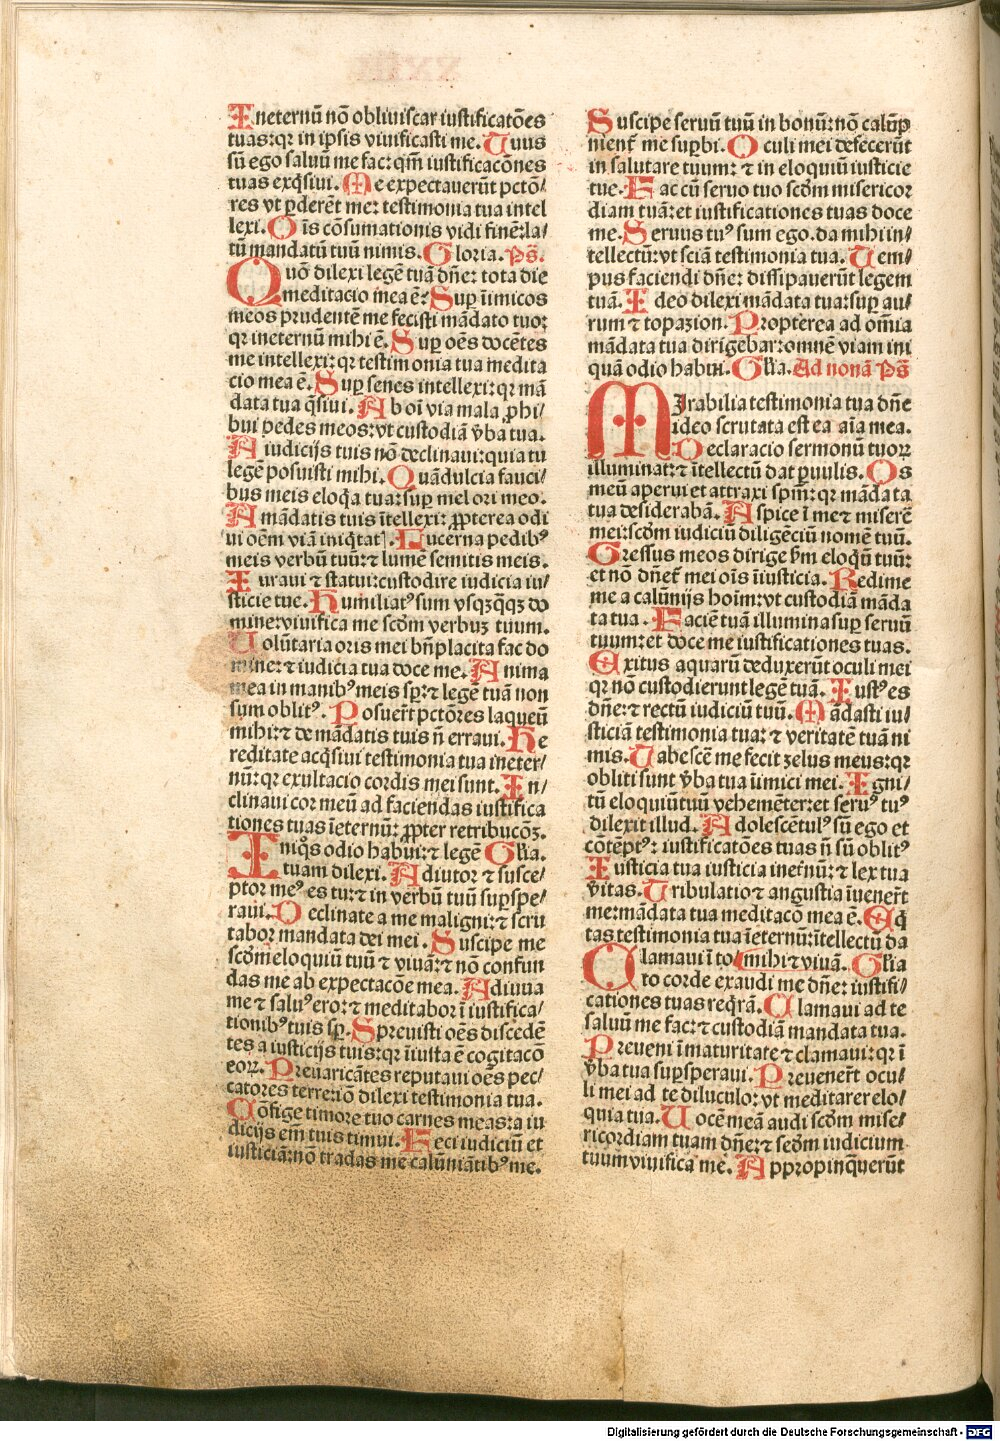 In eternū nō obliuiscar iustificatōes
tuas: qꝛ in ipsis viuificasti me. Tuus
sū ego saluū me fac: qm̄ iustificacōnes
tuas exq̄siui. Me expectauerūt pctō/
res vt ꝑderēt me: testimonia tua intel
lexi. Oīs cōsumationis vidi finē: la/
tū mandatū tuū nimis. Gloria. Ps̄.
Quō dilexi legē tuā dn̄e: tota die
meditacio mea ē: Suꝑ īimicos
meos prudentē me fecisti mādato tuo:
qꝛ in eternū mihi ē. Suꝑ oēs docētes
me intellexi: qꝛ testimonia tua medita
cio mea ē. Suꝑ senes intellexi: qꝛ mā
data tua q̄siui. Ab oī via mala ꝓhi/
bui pedes meos: vt custodiā v̄ba tua.
A iudicijs tuis nō declinaui: quia tu
legē posuisti mihi. Quā dulcia fauci/
bus meis eloq̄a tua: suꝑ mel ori meo.
A mādatis tuis ītellexi: ꝓpterea odi
ui oēm viā iniq̄tatꝭ. Lucerna pedibꝰ
meis verbū tuū: ⁊ lumē semitis meis.
Iuraui ⁊ statui: custodire iudicia iu/
sticie tue. Humiliatꝰ sum vsqꝫq̄qꝫ do
mine: viuifica me scd̄m verbuꝫ tuum.
Volūtaria oris mei bn̄placita fac do
mine: ⁊ iudicia tua doce me. Anima
mea in manibꝰ meis sꝑ: ⁊ legē tuā non
sum oblitꝰ. Posuer̄t pctōres laqueū
mihi: ⁊ de mādatis tuis n̄ erraui. He
reditate acq̄siui testimonia tua in eter/
nū: qꝛ exultacio cordis mei sunt. In/
clinaui cor meū ad faciendas iustifica
tiones tuas ī eternū: ꝓpter retribucōꝫ.
Iniq̊s odio habui: ⁊ legē Gl̄ia.
tuam dilexi. Adiutor ⁊ susce/
ptor meꝰ es tu: ⁊ in verbū tuū suꝑspe/
raui. Declinate a me maligni: ⁊ scru
tabor mandata dei mei. Suscipe me
scd̄m eloquiū tuū ⁊ viuā: ⁊ nō confun
das me ab expectacōe mea. Adiuua
me ⁊ saluꝰ ero: ⁊ meditabor ī iustifica/
tionibꝰ tuis sꝑ. Spreuisti oēs discedē
tes a iusticijs tuis: qꝛ iniusta ē cogitacō
eoꝝ. Preuaricātes reputaui oēs pec/
catores terre: iō dilexi testimonia tua.
Cōfige timore tuo carnes meas: a iu
dicijs em̄ tuis timui. Feci iudiciū et
iusticiā: nō tradas me calūniātibꝰ me.
Suscipe seruū tuū in bonū: nō calūp̄
nient̄ me suꝑbi. Oculi mei defecerūt
in salutare tuum: ⁊ in eloquiū iusticie
tue. Fac cū seruo tuo scd̄m misericor
diam tuā: et iustificationes tuas doce
me. Seruus tuꝰ sum ego. da mihi in/
tellectū: vt sciā testimonia tua. Tem/
pus faciendi dn̄e: dissipauerūt legem
tuā. Ideo dilexi mādata tua: suꝑ au/
rum ⁊ topazion. Propterea ad om̄ia
mādata tua dirigebar: omnē viam ini
quā odio habui. Gl̄ia. Ad nonā Ps̄
Mirabilia testimonia tua dn̄e
ideo scrutata est ea aīa mea.
Declaracio sermonū tuoꝝ
illuminat: ⁊ ītellectū dat ꝑuulis. Os
meū aperui et attraxi spm̄: qꝛ mādata
tua desiderabā. Aspice ī me ⁊ miserē
mei: scd̄m iudiciū diligēciū nomē tuū.
Gressus meos dirige ẜm eloqū tuū:
et nō dn̄et̄ mei oīs īiusticia. Redime
me a calūnijs hoīm: vt custodiā māda
ta tua. Faciē tuā illumina suꝑ seruū
tuum: et doce me iustificationes tuas.
Exitus aquarū deduxerūt oculi mei
qꝛ nō custodierunt legē tuā. Iustꝰ es
dn̄e: ⁊ rectū iudiciū tuū. Mādasti iu/
sticiā testimonia tua: ⁊ veritatē tuā ni
mis. Tabescē me fecit zelus meus: qꝛ
obliti sunt v̄ba tua īimici mei. Igni/
tū eloquiū tuū vehemēter: et seruꝰ tuꝰ
dilexit illud. Adolescētulꝰ sū ego et
cōtēptꝰ: iustificatōes tuas n̄ sū oblitꝰ
Iusticia tua iusticia inet̄nū: ⁊ lex tua
v̄itas. Tribulatio ⁊ angustia īuener̄t
me: mādata tua meditacō mea ē. Eq̄
tas testimonia tua ī eternū: ītellectū da
Clamaui ī to mihi ⁊ viuā. Gl̄ia
to corde exaudi me dn̄e: iustifi/
cationes tuas reqrā. Clamaui ad te
saluū me fac: ⁊ custodiā mandata tua.
Preueni ī maturitate ⁊ clamaui: qꝛ ī
v̄ba tua suꝑsperaui. Preuener̄t ocu/
li mei ad te diluculo: vt meditarer elo/
quia tua. Vocē meā audi scd̄m mise/
ricordiam tuam dn̄e: ⁊ scd̄m iudicium
tuum viuifica me. Appropinq̄uerūt
Digitalisierung gefördert durch die Deutsche Forschungsgemeinschaft - DFG